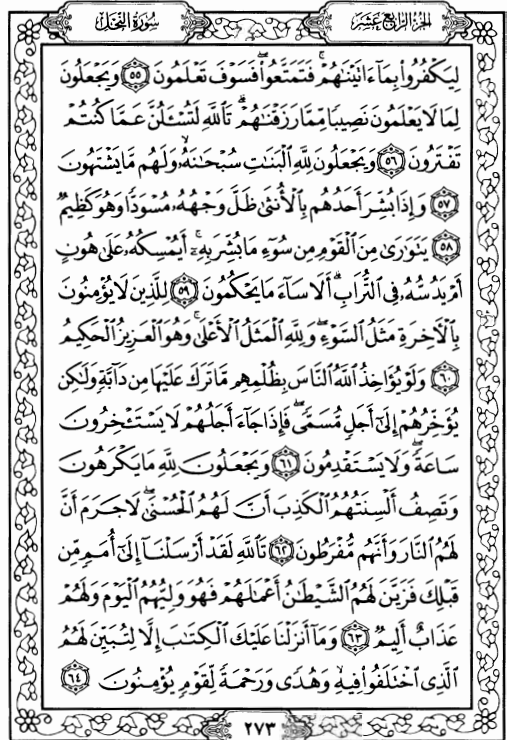 سورة النحل
الجزء الرابع عشر
لِيَكْفُرُوا۟ بِمَآ ءَاتَيْنَٰهُمْ ۚ فَتَمَتَّعُوا۟ ۖ فَسَوْفَ تَعْلَمُونَ ٥٥ وَيَجْعَلُونَ
لِمَا لَا يَعْلَمُونَ نَصِيبًا مِّمَّا رَزَقْنَٰهُمْ ۗ تَٱللَّهِ لَتُسْـَٔلُنَّ عَمَّا كُنتُمْ
تَفْتَرُونَ ٥٦ وَيَجْعَلُونَ لِلَّهِ ٱلْبَنَٰتِ سُبْحَٰنَهُۥ ۙ وَلَهُم مَّا يَشْتَهُونَ
٥٧ وَإِذَا بُشِّرَ أَحَدُهُم بِٱلْأُنثَىٰ ظَلَّ وَجْهُهُۥ مُسْوَدًّا وَهُوَ كَظِيمٌ
٥٨ يَتَوَٰرَىٰ مِنَ ٱلْقَوْمِ مِن سُوٓءِ مَا بُشِّرَ بِهِۦٓ ۚ أَيُمْسِكُهُۥ عَلَىٰ هُونٍ
أَمْ يَدُسُّهُۥ فِى ٱلتُّرَابِ ۗ أَلَا سَآءَ مَا يَحْكُمُونَ ٥٩ لِلَّذِينَ لَا يُؤْمِنُونَ
بِٱلْـَٔاخِرَةِ مَثَلُ ٱلسَّوْءِ ۖ وَلِلَّهِ ٱلْمَثَلُ ٱلْأَعْلَىٰ ۚ وَهُوَ ٱلْعَزِيزُ ٱلْحَكِيمُ
٦٠ وَلَوْ يُؤَاخِذُ ٱللَّهُ ٱلنَّاسَ بِظُلْمِهِم مَّا تَرَكَ عَلَيْهَا مِن دَآبَّةٍ وَلَٰكِن
يُؤَخِّرُهُمْ إِلَىٰٓ أَجَلٍ مُّسَمًّى ۖ فَإِذَا جَآءَ أَجَلُهُمْ لَا يَسْتَـْٔخِرُونَ
سَاعَةً ۖ وَلَا يَسْتَقْدِمُونَ ٦١ وَيَجْعَلُونَ لِلَّهِ مَا يَكْرَهُونَ
وَتَصِفُ أَلْسِنَتُهُمُ ٱلْكَذِبَ أَنَّ لَهُمُ ٱلْحُسْنَىٰ ۖ لَا جَرَمَ أَنَّ
لَهُمُ ٱلنَّارَ وَأَنَّهُم مُّفْرَطُونَ ٦٢ تَٱللَّهِ لَقَدْ أَرْسَلْنَآ إِلَىٰٓ أُمَمٍ مِّن
قَبْلِكَ فَزَيَّنَ لَهُمُ ٱلشَّيْطَٰنُ أَعْمَٰلَهُمْ فَهُوَ وَلِيُّهُمُ ٱلْيَوْمَ وَلَهُمْ
عَذَابٌ أَلِيمٌ ٦٣ وَمَآ أَنزَلْنَا عَلَيْكَ ٱلْكِتَٰبَ إِلَّا لِتُبَيِّنَ لَهُمُ
ٱلَّذِى ٱخْتَلَفُوا۟ فِيهِ ۙ وَهُدًى وَرَحْمَةً لِّقَوْمٍ يُؤْمِنُونَ ٦٤
٢٧٣